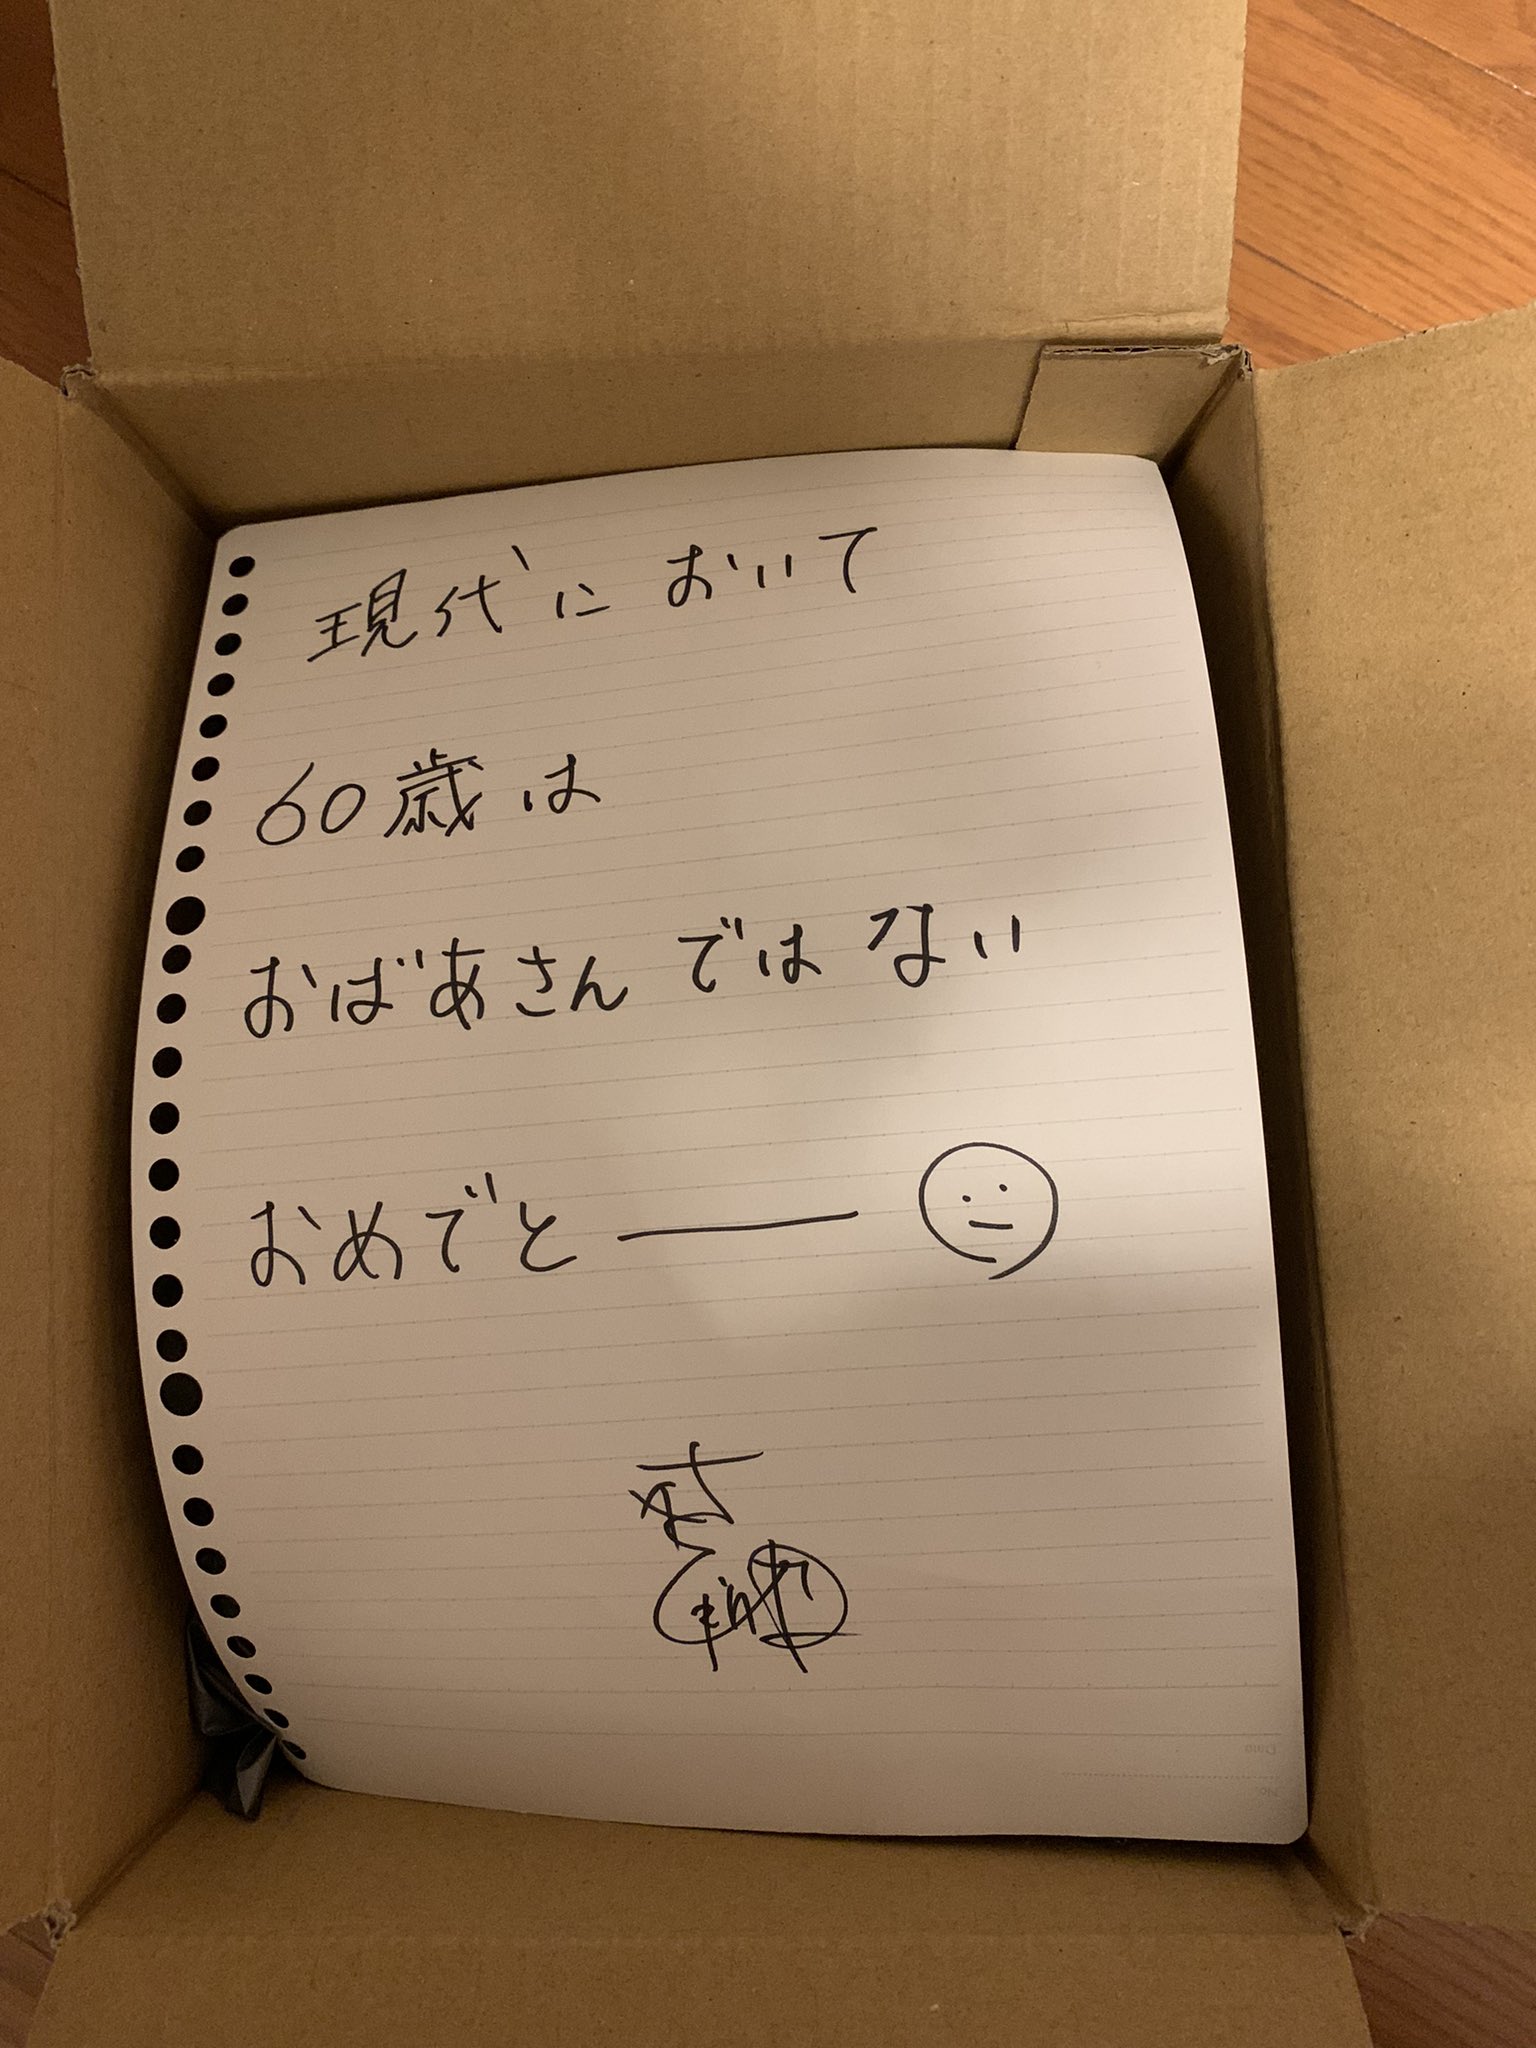 現代において
60歳は
おばあさんではない
おめでとー